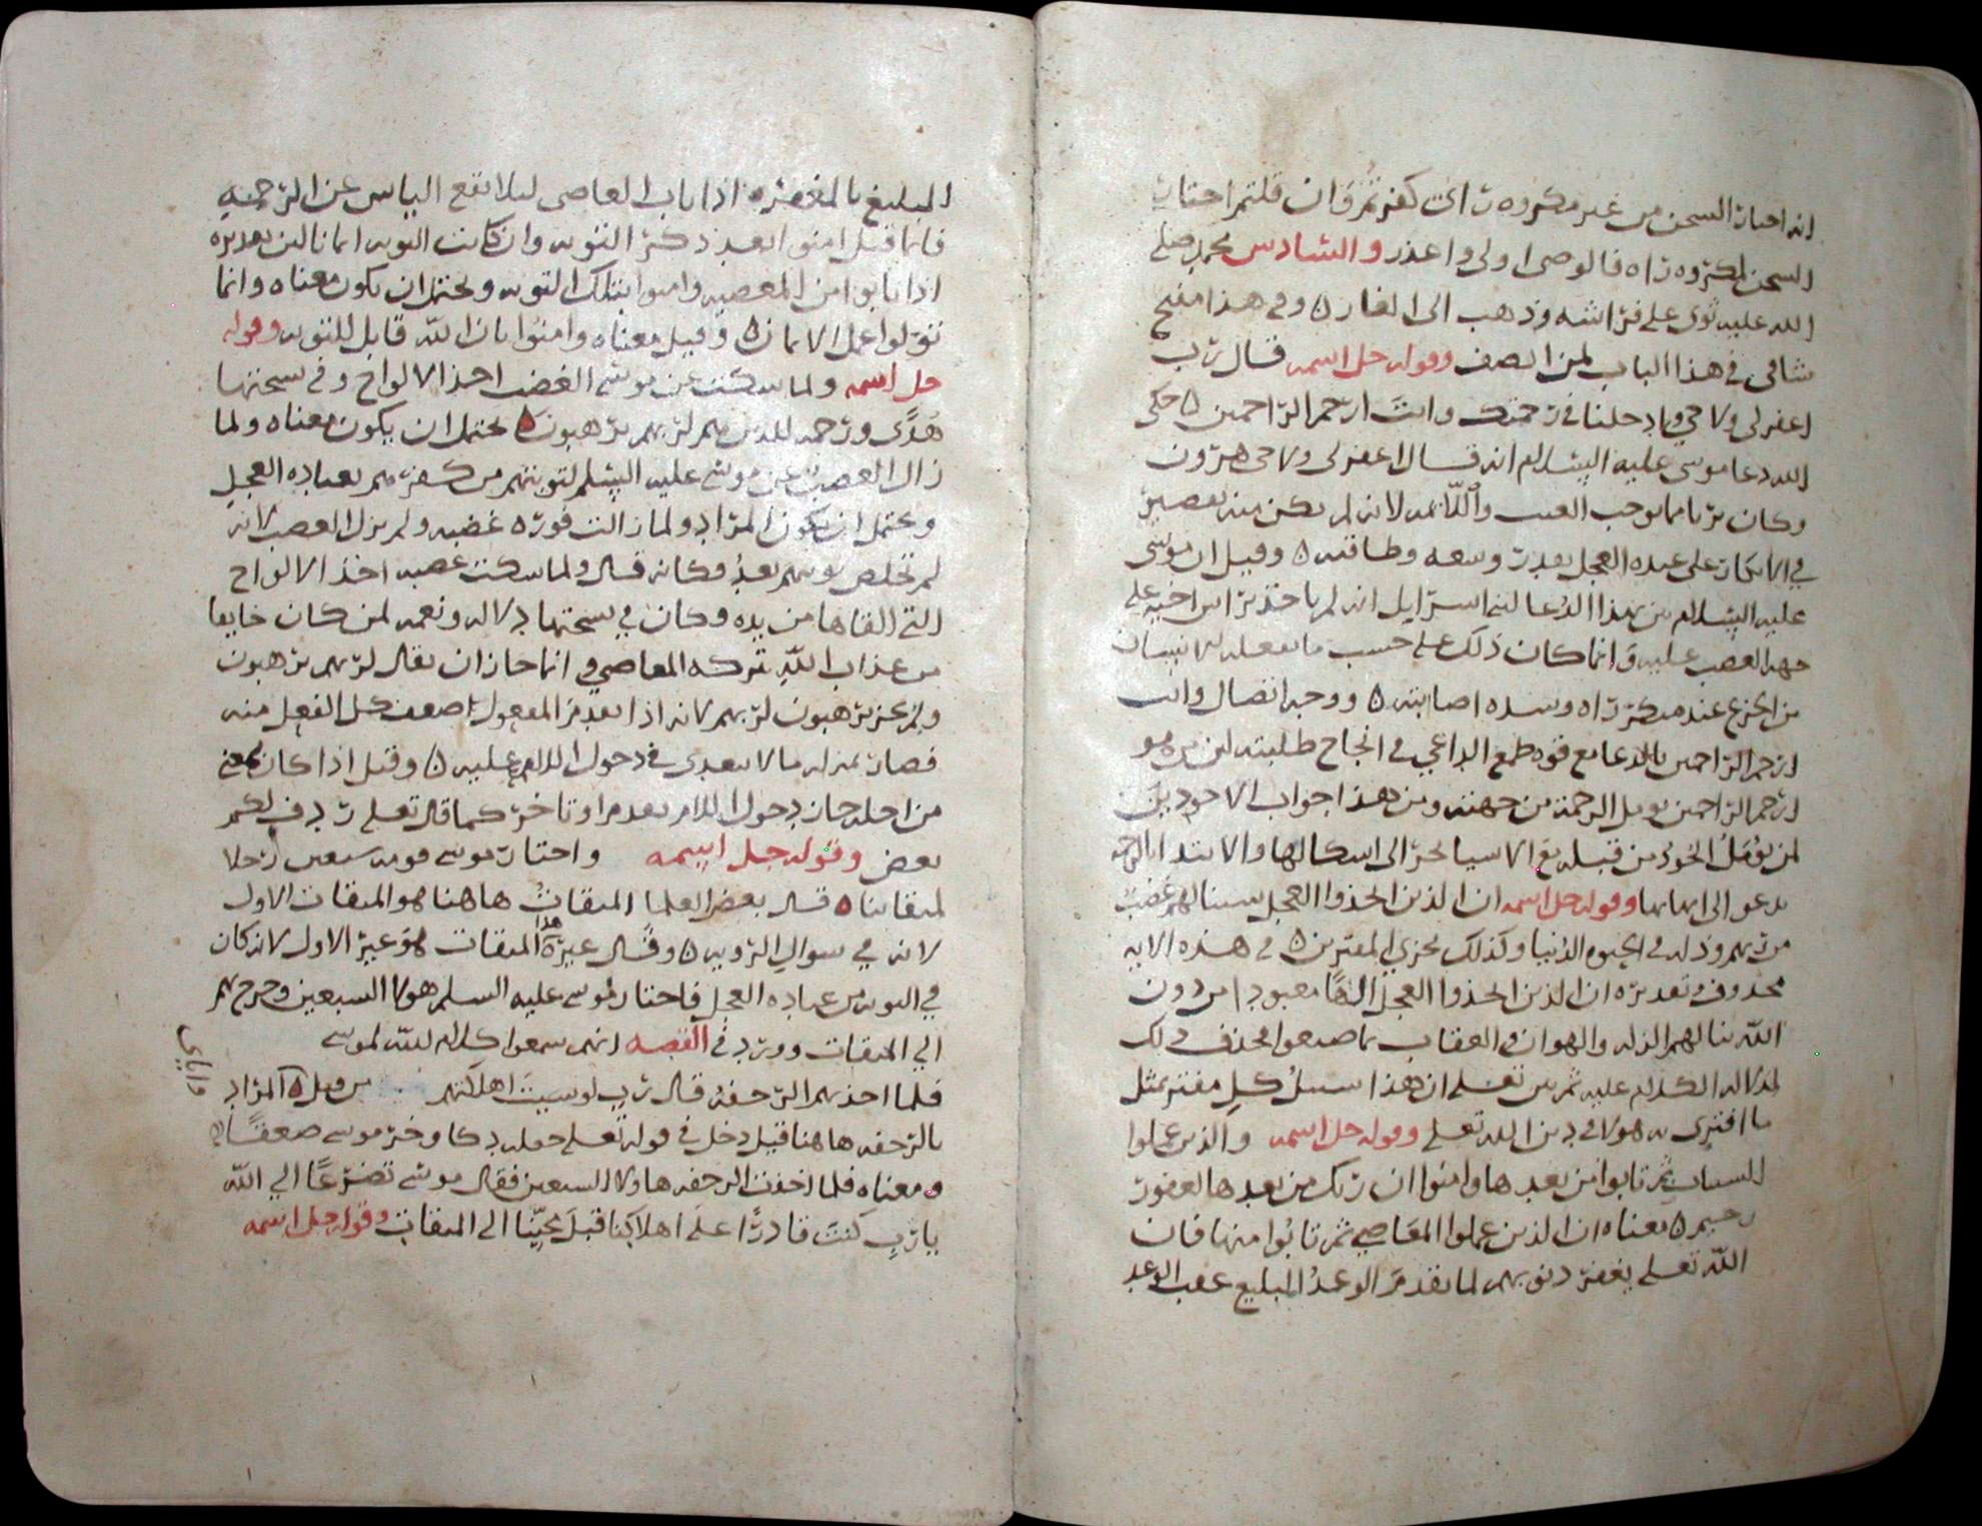 انه اختار السجن من غير مكروه رأى كفر ثم وان قلتم اختار
السجن لمكروه راه فالوصي اولى واعذر والسادس محمد صلى
الله عليه ثوى على فراشه وذهب الى الغار ه وفي هذا مقنع
شافي في هذا الباب لمن انصف وقوله جل اسمه قال رب
اغفر لي ولاخي وادخلنا في رحمتك وانت ارحم الراحمين ه حكى
الله دعا موسى عليه السلام انه قال اغفر لي ولاخي هرون
وكان بريا مما يوجب العتب واللائمه لانه لم يكن منه تقصير
في الانكار على عبده العجل بقدر وسعه وطاقته ه وقيل ان موسى
عليه السلام بين بهذا الدعا لبني اسرايل انه لم ياخذ براس اخيه على
جهة الغضب عليه وانما كان ذلك على حسب ما يفعله الانسان
من الجزع عند مكر راه وشده اصابته ه ووجه اتصال وانت
ارحم الراحمين بالدعا مع قوه طمع الداعي في انجاح طلبته لمن هو
ارحم الراحمين يومل الرحمة من جهته ومن هذا جواب الاجودين
لمن يومل الجود من قبله مع الاسيا نحر الى اسكالها والابتدا بالرحمه
يدعو الى اتمامها وقوله جل اسمه ان الذين اتخذوا العجل سينالهم غضب
من ربهم وذله في الحيوه الدنيا وكذلك نجزي المفترين ه في هذه الايه
محذوف تقديره ان الذين اتخذوا العجل الها معبودا من دون
الله ينالهم الذله والهوان في العقاب بما صنعوا فحذف ذلك
لدلاله الكلام عليه ثم بين تعلى ان هذا سبيل كل مفتر بمثل
ما افترى به هولا في دين الله تعلى وقوله جل اسمه والذين عملوا
السيات ثم تابوا من بعدها وامنوا ان ربك من بعدها لغفور
رحيم ه معناه ان الذين عملوا المعاصي ثم تابوا منها فان
الله تعلى يغفر ذنوبهم لما تقدم الوعد المبليغ عقب الوعد
المبليغ بالمغفره اذا تاب العاصي ليلا يقع الياس عن الرحمه
فانما قيل امنوا بعد ذكر التوبه وان كانت التوبه ايمانا لان تقديره
اذا تابوا من المعصيه وامنوا بتلك التوبه ويحتمل ان يكون معناه وانما
توبوا عمل الايمان ه وقيل معناه وامنوا بان الله قابل للتوبه وقوله
جل اسمه ولما سكت عن موسى الغضب اخذ الالواح وفي نسختها
هدى ورحمه للذين هم لربهم يرهبون ه يحتمل ان يكون معناه ولما
زال الغضب عن موسى عليه السلم لتوبتهم من كفرهم بعباده العجل
ويحتمل ان يكون المراد ولما زالت فوره غضبه ولم يزل الغضب لانه
لم تخلص توبتهم بعد وكانه قال ولما سكت غضبه اخذ الالواح
التي القاها من يده وكان في نسختها دلاله ونعمه لمن كان خايفا
من عذاب الله تركه المعاصي وانما جاز ان يقال لربهم يرهبون
ولم يجز يرهبون لربهم لانه اذا تقدم المفعول ضعف عمل الفعل منه
فصار بمنزله ما لا يتعدى في دخول اللام عليه ه وقيل اذا كان بمعنى
من اجله جاز دخول اللام تقدم او تاخر كما قال تعلى ردف لكم
بعض وقوله جل اسمه واختار موسى قومه سبعين رجلا
لميقاتنا ه قال بعض العلما الميقات هاهنا هو الميقات الاول
لانه في سوال الرويه ه وقال غيره هذا الميقات هو غير الاول لانه كان
في التوبه من عباده العجل فاختار موسى عليه السلم هولا السبعين وخرج بهم
الي الميقات وورد في القصه انهم سمعوا كلام الله لموسى
فلما اخذتهم الرجفه قال رب لو شيت اهلكتهم من قبل ه المراد
واياي
بالرجفه هاهنا قيل دخل في قوله تعلى جعله دكا وخر موسى صعقا
ومعناه فلما اخذت الرجفه هاولا السبعين فقال موسى تضرعا الي الله
يا رب كنت قادرا على اهلاكنا قبل مجينا الى الميقات وقوله جل اسمه